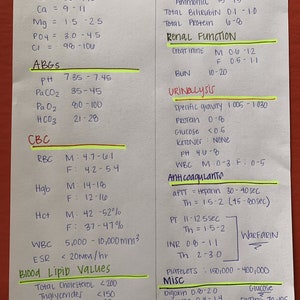 Ca = 9-11
Mg = 1.5-2.5
PO4 = 3.0-4.5
Cl = 98-106
ABGs
pH 7.35-7.45
PaCO2 35-45
PaO2 80-100
HCO3 21-28
CBC
RBC M: 4.7-6.1
F: 4.2-5.4
Hgb M: 14-18
F: 12-16
Hct M: 42-52%
F: 37-47%
WBC 5,000-10,000 mm³
ESR < 20mm/hr
Blood Lipid Values
Total Cholesterol < 200
Triglycerides < 150
Total Bilirubin 0.1-1.0
Total Protein 6-8
Renal Function
Creatinine M 0.6-1.2
F 0.5-1.1
BUN 10-20
Urinalysis
Specific gravity 1.005-1.030
Protein 0-8
Glucose < 0.5
Ketones: None
pH 4.6-8
WBC M: 0-3 F: 0-5
Anticoagulants
aPTT = Heparin 30-40 sec
Th = 1.5-2
PT 11-12.5 sec
Th = 1.5-2
Warfarin
INR 0.8-1.1
Th 2-3.0
Platelets: 150,000-400,000
Misc
Digoxin 0.8-2.0
Glucose